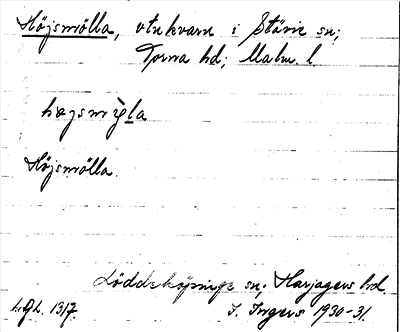 Höjsmölla, vtnkvarn i Stävie sn;
Torna hd; Malm. l.
Höjsmölla.
Löddeköpinge sn; Harjagers hd.
I. Ingers 1930-31.